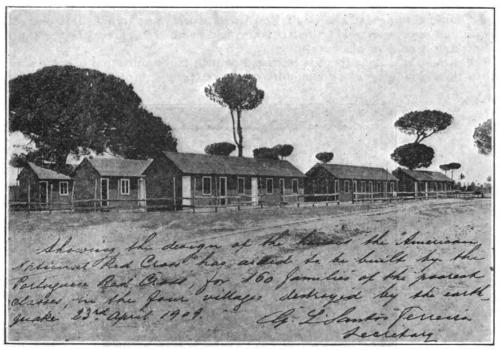 Showing the design of the houses the "American
National Red Cross" has asked to be built by the
Portuguese Red Cross, for "160 families" of the poorest
classes, in the four villages destroyed by the earth
quake 23rd April 1909.
G. L. Santos Ferreira
Secretary